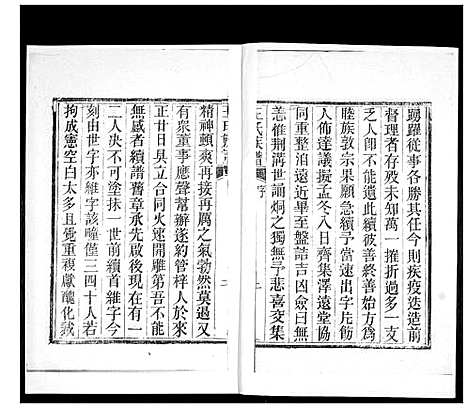 踴躍從事各勝其任今則疾疫迭造前
督理者存歿未知萬一摧折過多一支
乏人即不能遺此續彼善終善始方爲
睦族敦宗果願急續予當速出字片飭
人佈達議擬孟冬八日齊集澤遠堂協
同重整泊遠近畢至盤詰吉凶僉曰無
恙惟荆溝世誦炯之獨無予悲喜交集
王氏族譜 序
精神頓爽再接再厲之氣勃然莫遏又
有衆董事應聲幫辦遂約管梓人於來
正廿日吴立合同火速開雕第吾不能
無感者續譜舊章承先啟後現在有一
二人决不可塗抹一世前續首雜字今
刻由世字亦雜字該疃僅三四十人若
拘成憲空白太多且慮重複獻醜化裁